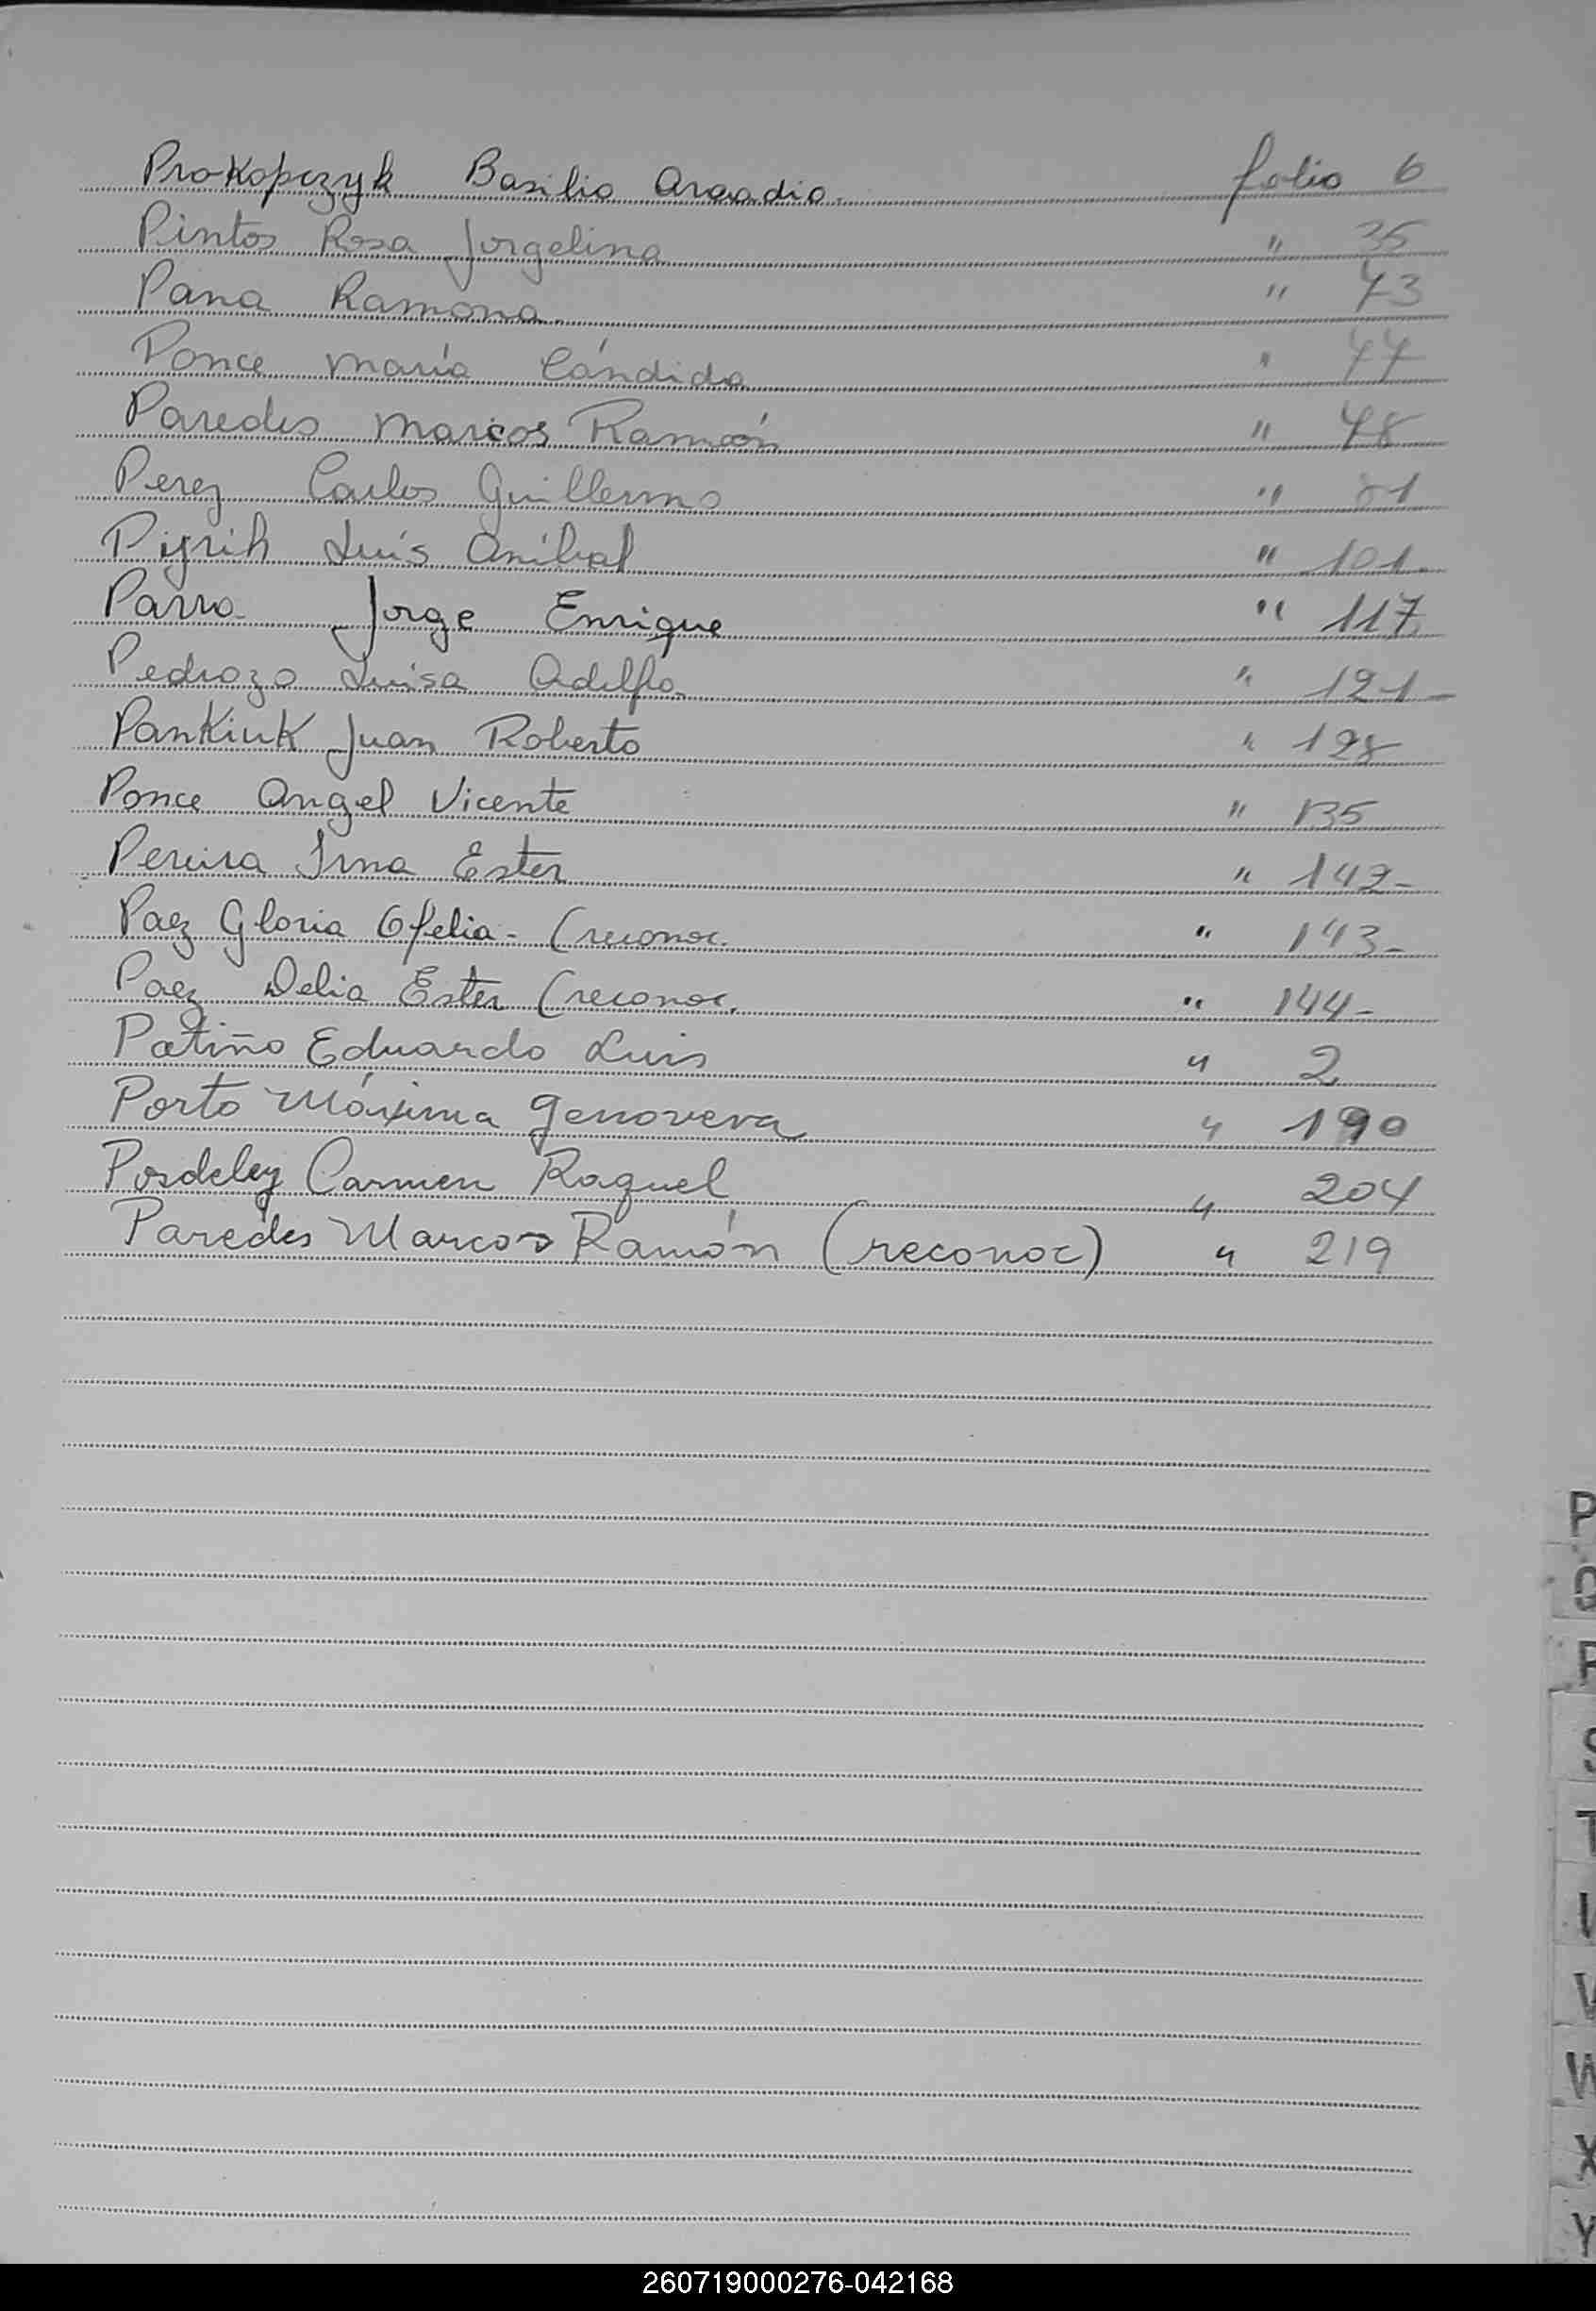 Prokopczyk Basilio Arcadio. folio 6
Pintos Rosa Jorgelina " 35
Pana Ramona. " 73
Ponce María Cándida " 77
Paredes Marcos Ramón " 78
Perez Carlos Guillermo " 81
Pijrih Luís Aníbal " 101.
Parra Jorge Enrique " 117.
Pedrozo Luisa Adelfa. " 121-
Pankiuk Juan Roberto " 128
Ponce Angel Vicente " 135
Pereira Irma Ester " 142-
Paez Gloria Ofelia - (reconoc. " 143-
Paez Delia Ester (reconoc. " 144-
Patiño Eduardo Luis " 2
Porto Máxima Genoveva " 190
Posdeley Carmen Raquel " 204
Paredes Marcos Ramón (reconoc) " 219
P
Q
R
S
T
U
V
W
X
Y
260719000276-042168